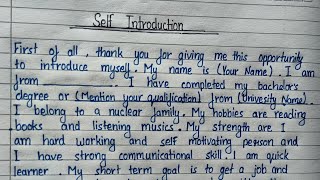 Self Introduction
First of all, thank you for giving me this opportunity
to introduce myself. My name is (Your Name). I am
from ............ I have completed my bachelor's
degree or (Mention your qualification) from (Univesity Name)..
I belong to a nuclear family. My hobbies are reading
books and listening musics. My strength are I
am hard working and self motivating person and
I have strong communicational skill. I am quick
learner. My short term goal is to get a job and